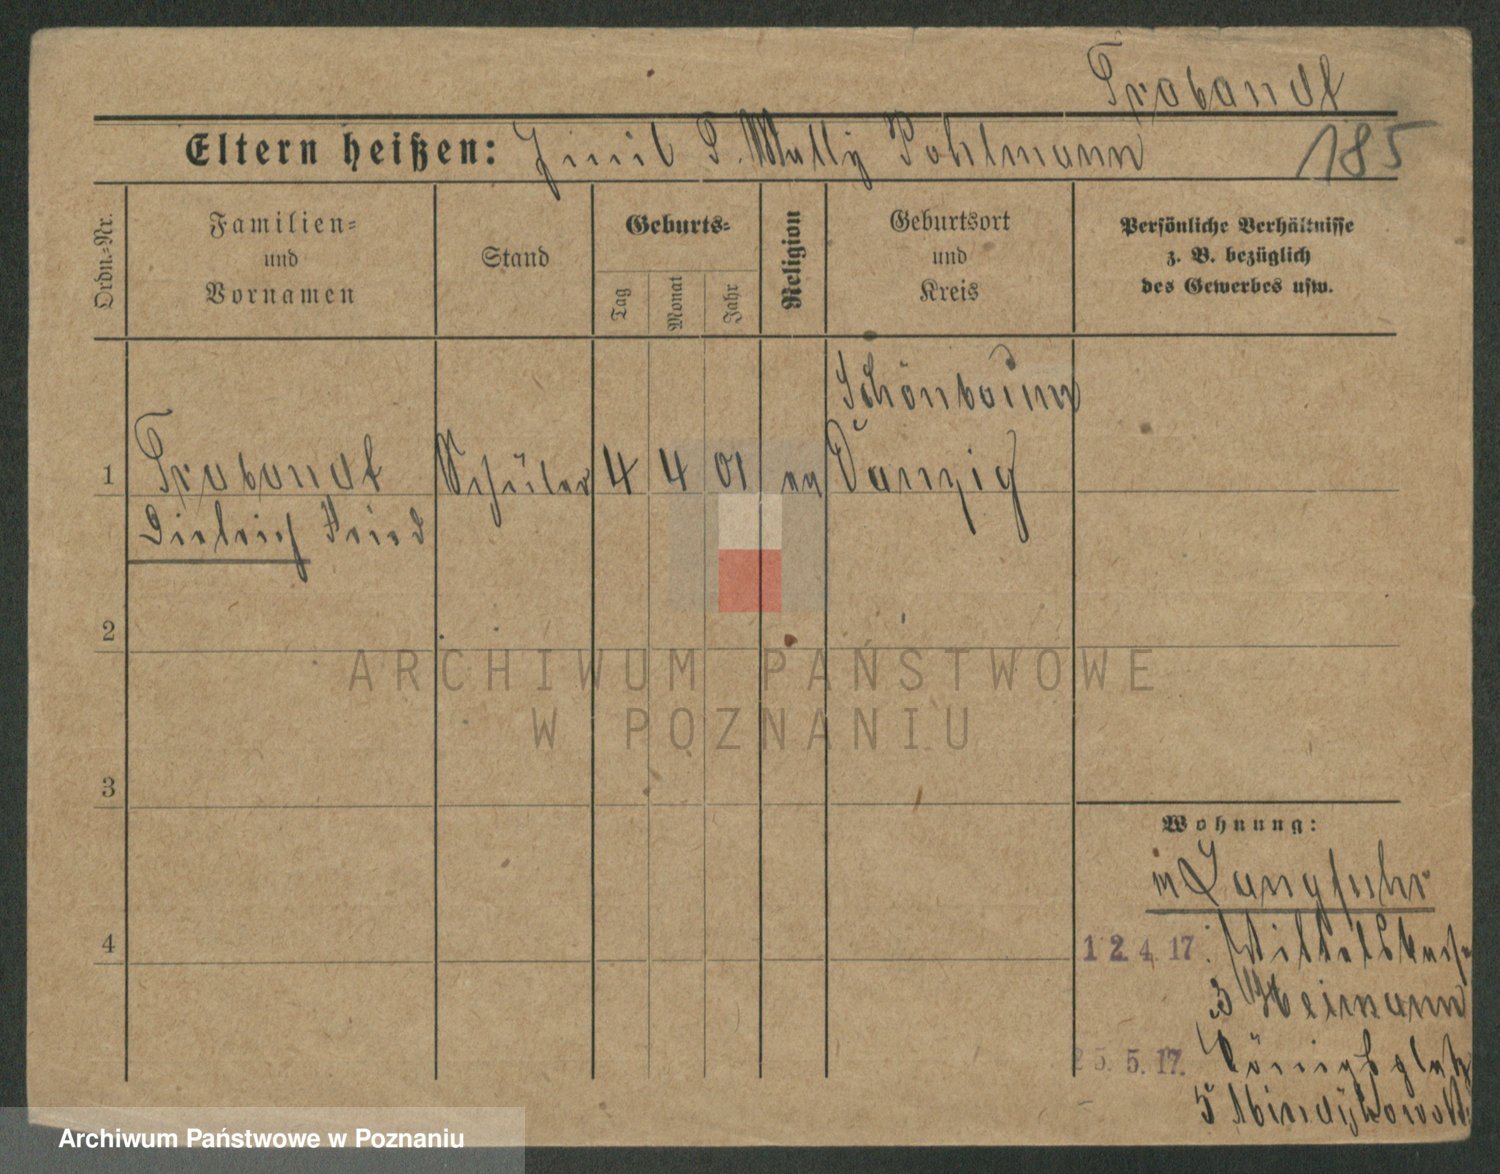 Trabandt
185
Eltern heißen: Emil u. Mally Pohlmann
Ordn.-Nr.
Familien=
und
Vornamen
Stand
Geburts=
Tag
Monat
Jahr
Religion
Geburtsort
und
Kreis
Persönliche Verhältnisse
z. B. bezüglich
des Gewerbes usw.
Schönbaum
1 Trabandt Schüler 4 4 01 ev Danzig
Dietrich Fried
2
3
4
ARCHIWUM PAŃSTWOWE
W POZNANIU
Wohnung:
in Langfuhr
12.4.17
3 Heimann
25.5.17. Königsplatz
5
Archiwum Państwowe w Poznaniu